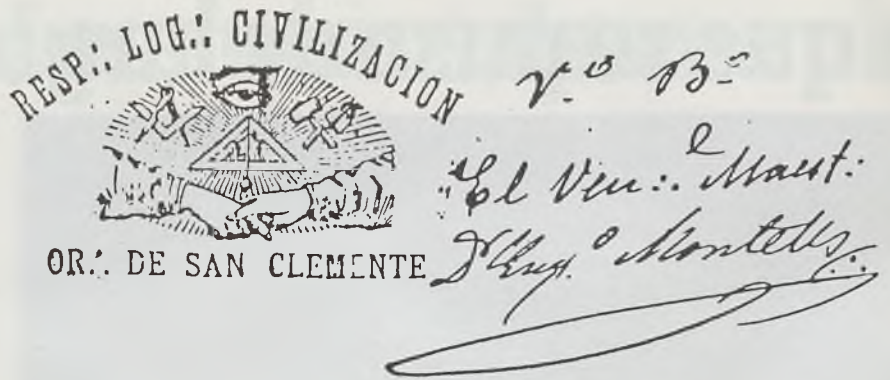 RESP∴ LOG∴ CIVILIZACION
OR∴ DE SAN CLEMENTE
V.º Bº
El Ven∴e Maest:
Dr Eugº Montells